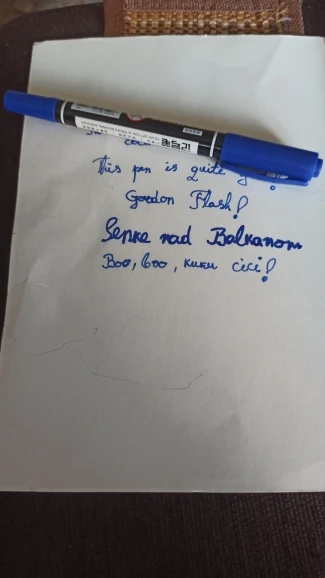 This pen is quite
Gordon Flash!
Senke nad Balkanom
Boo, boo, kuku cici!